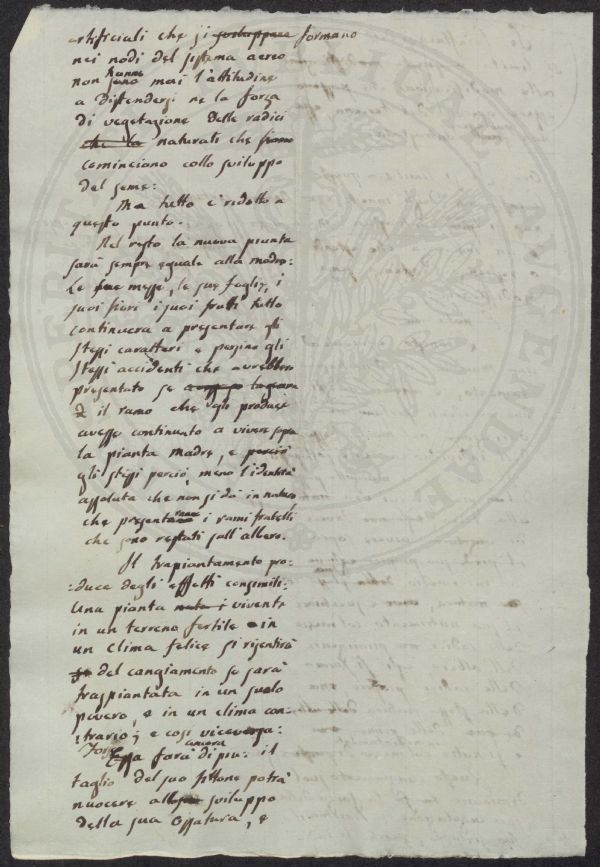 artificiali che si sviluppano formano
nei nodi del sistema aereo
non hanno mai l'attitudine
a distendersi ne la forza
di vegetazione delle radici
che la naturali che
cominciano collo sviluppo
del seme:
Ma tutto è ridotto a
questo punto.
Nel resto la nuova pianta
sarà sempre eguale alla madre:
Le sue messe, le sue foglie, i
suoi fiori i suoi frutti tutto
continuera a presentare gli
stessi caratteri e persino gli
stessi accidenti che avrebbero
presentato se
il ramo che gli produce
avesse continuato a vivere sopra
la pianta madre, e perciò
gli stessi perciò, meno l'identità
assoluta che non si dà in natura
che presentano i rami fratelli
che sono restati sull'albero.
Il trapiantamento pro-
:duce degli effetti consimili:
Una pianta nata i vivente
in un terreno fertile e in
un clima felice si risentirà
del cangiamento se sarà
traspiantata in un suolo
povero, e in un clima con-
:trario; e così viceversa:
Forse
Essa farà ancora di più: il
taglio del suo fittone potrà
nuocere allo sviluppo
della sua ossatura, e